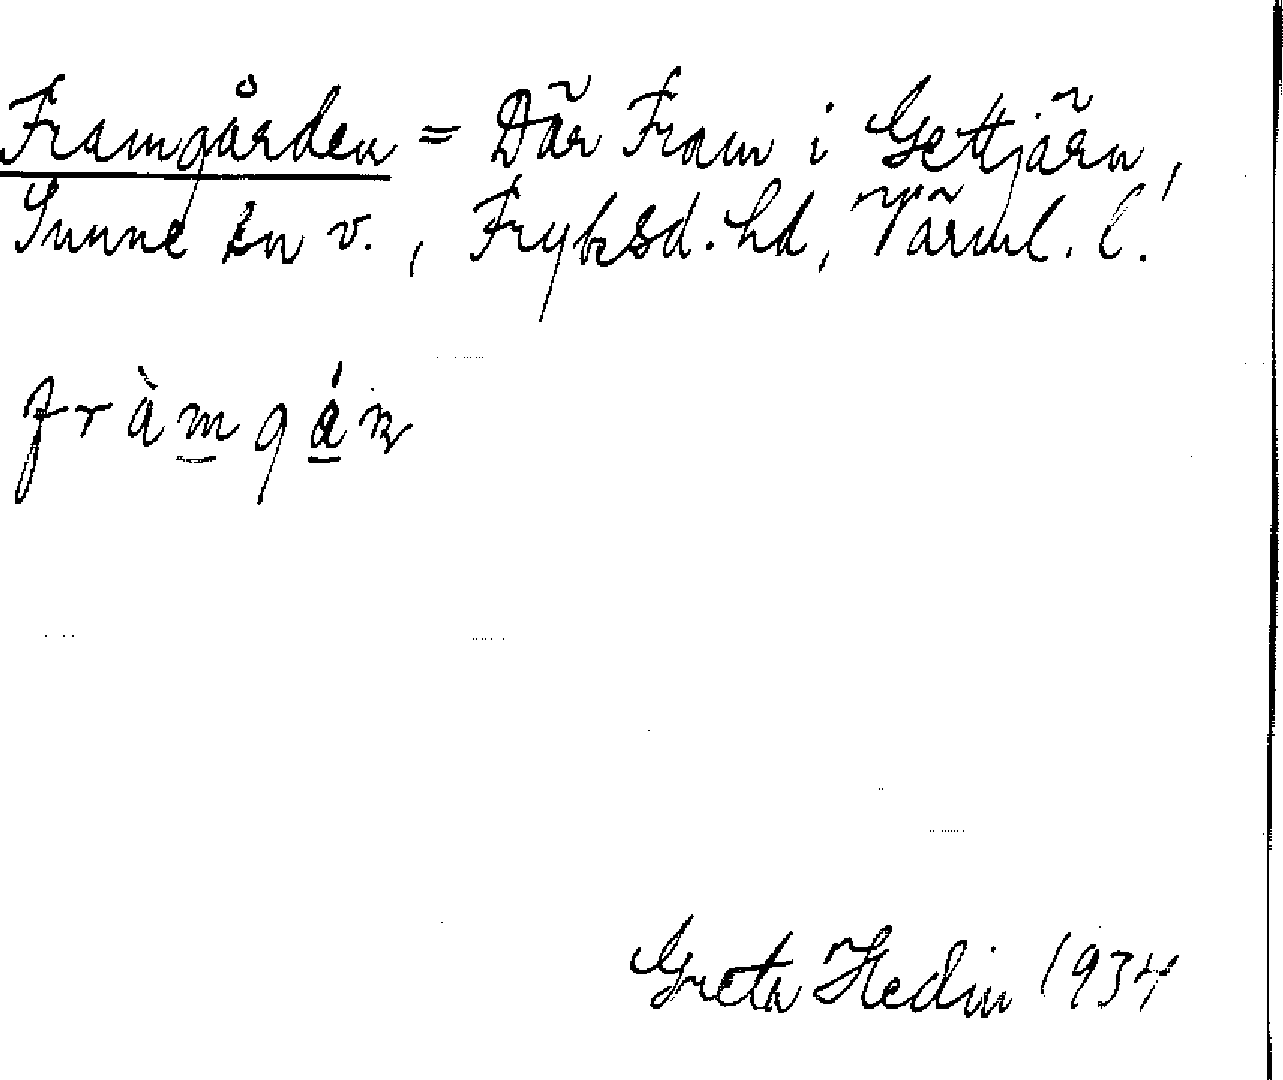 Framgården = Där Fram i Gettjärn,
Sunne sn v., Fryksd. hd, Värml. l.
fràmgán
Greta Hedin 1934